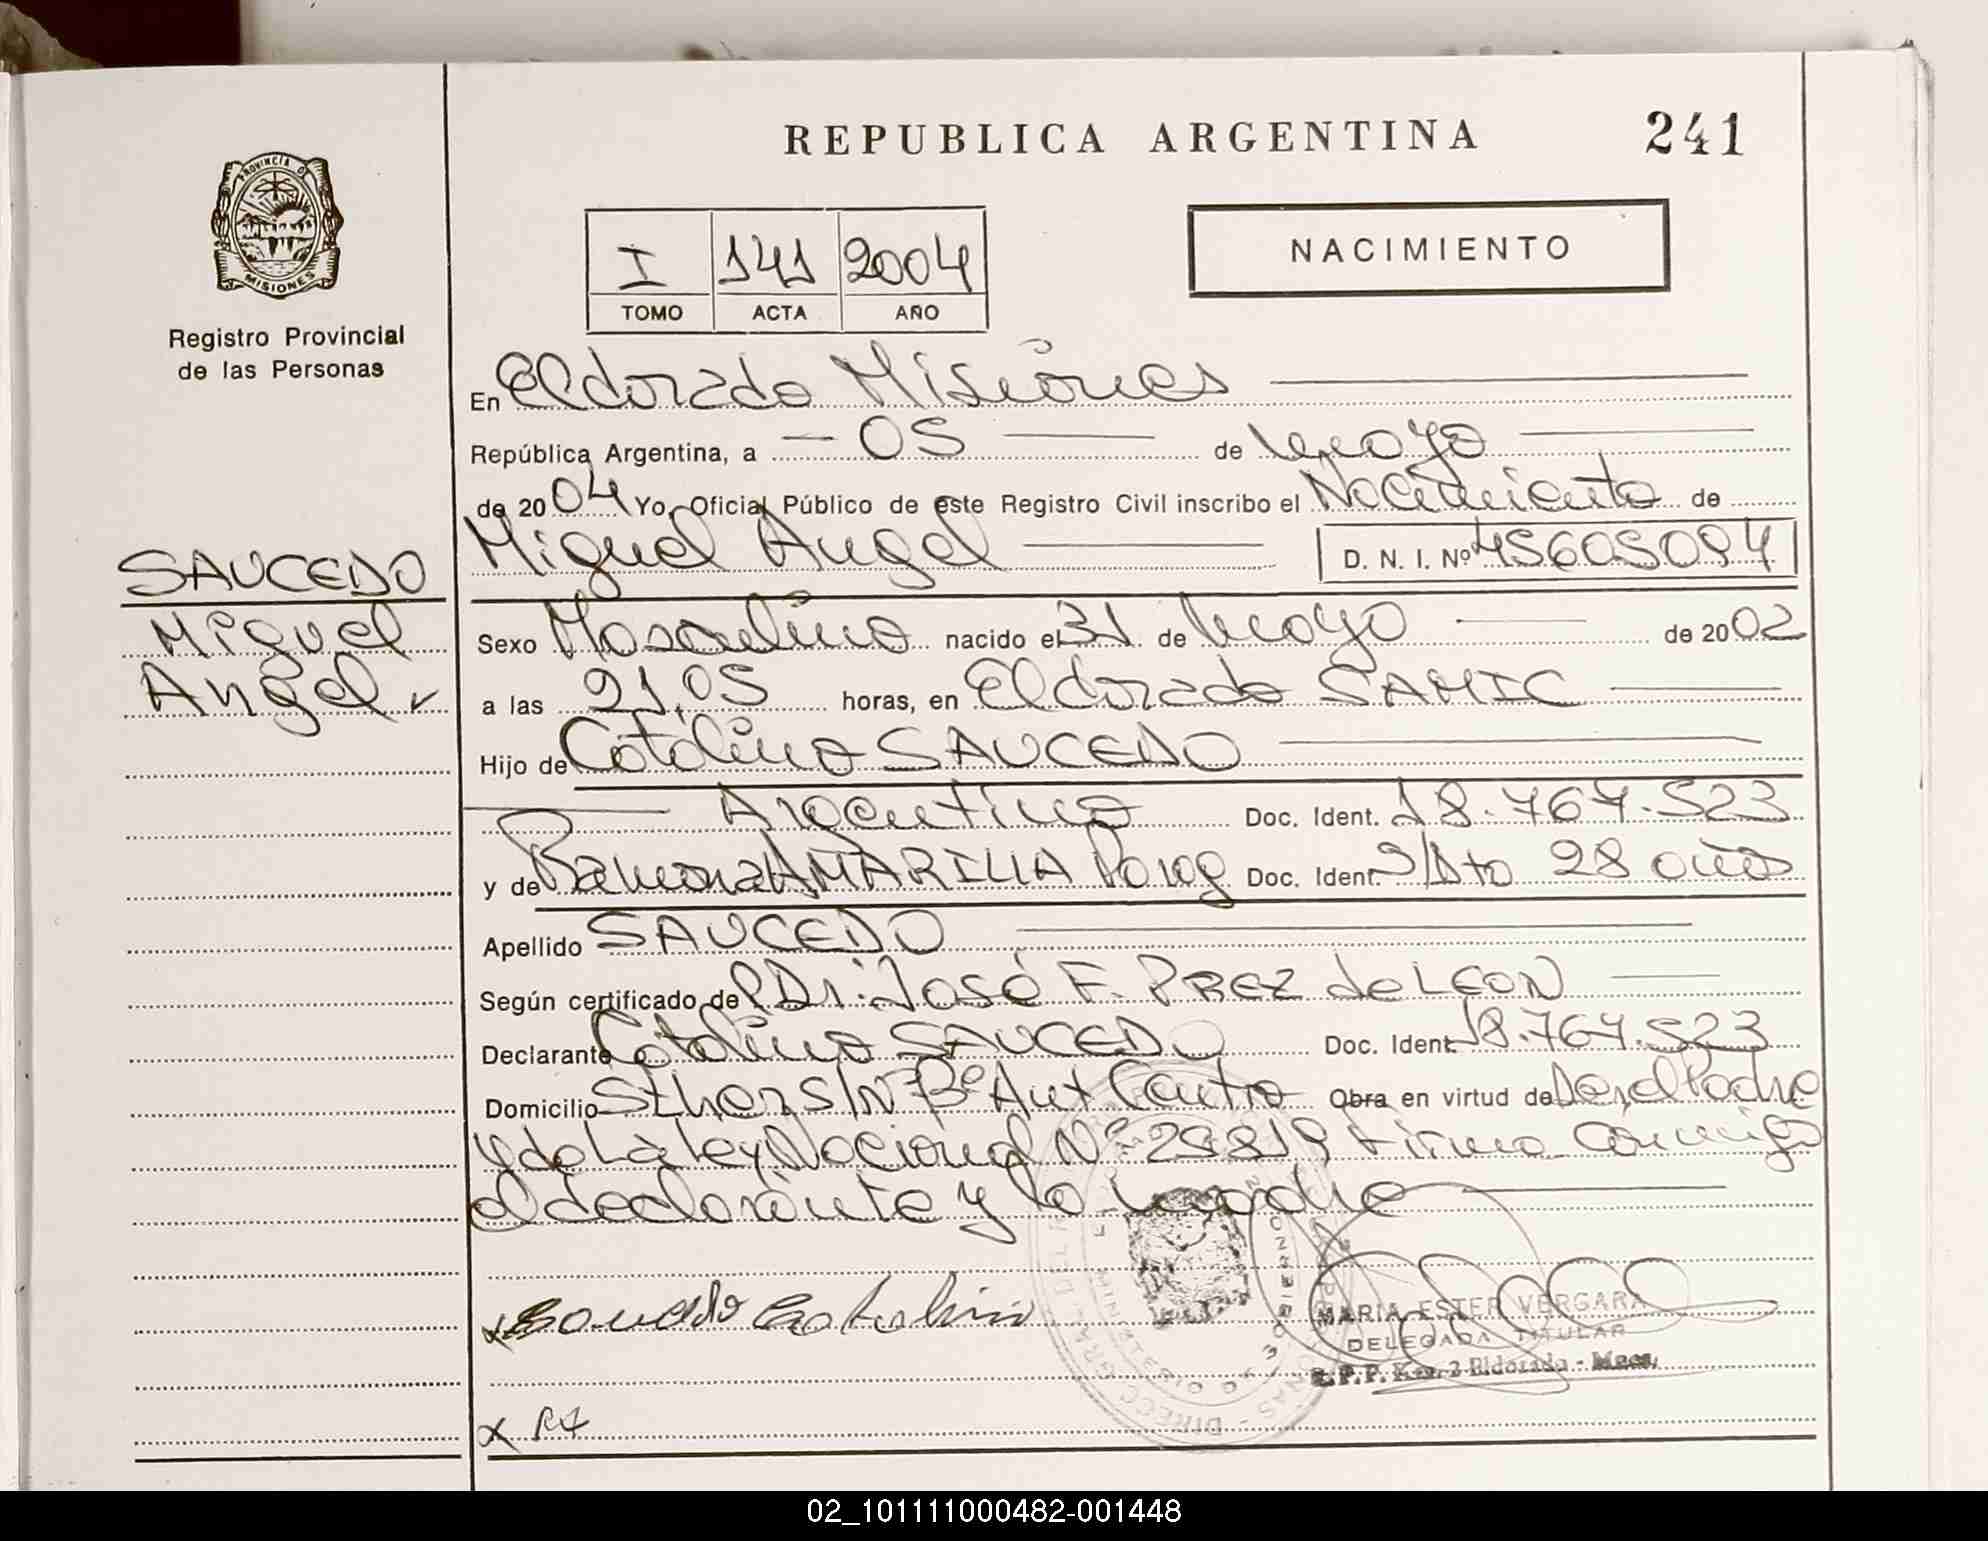 REPUBLICA ARGENTINA
241
PROVINCIA DE
MISIONES
Registro Provincial
de las Personas
I 141 2004
TOMO ACTA AÑO
NACIMIENTO
En Eldorado Misiones
República Argentina, a 05 de Mayo
de 2004 Yo, Oficial Público de este Registro Civil inscribo el Nacimiento de
Miguel Angel D. N. I. Nº 45605094
SAUCEDO
Miguel
Angel
Sexo Masculino nacido el 31 de Mayo de 2002
a las 21,05 horas, en Eldorado SAMIC
Hijo de Catalino SAUCEDO
Argentino Doc. Ident. 18.767.523
y de Ramona AMARILLA Parag Doc. Ident. S/Dto 28 años
Apellido SAUCEDO
Según certificado de Dr. José F. PREZ de LEON
Declarante Catalino SAUCEDO Doc. Ident. 18.767.523
Domicilio S/Nº Bº Aut Centro Obra en virtud de Ser el Padre
y de La Ley Nacional Nº 25819 Firma conmigo
el declarante y la madre
Saucedo Catalino
MARIA ESTER VERGARA
DELEGADA TITULAR
R.P.P. Km. 2 Eldorado - Mnes.
X RA
02_101111000482-001448